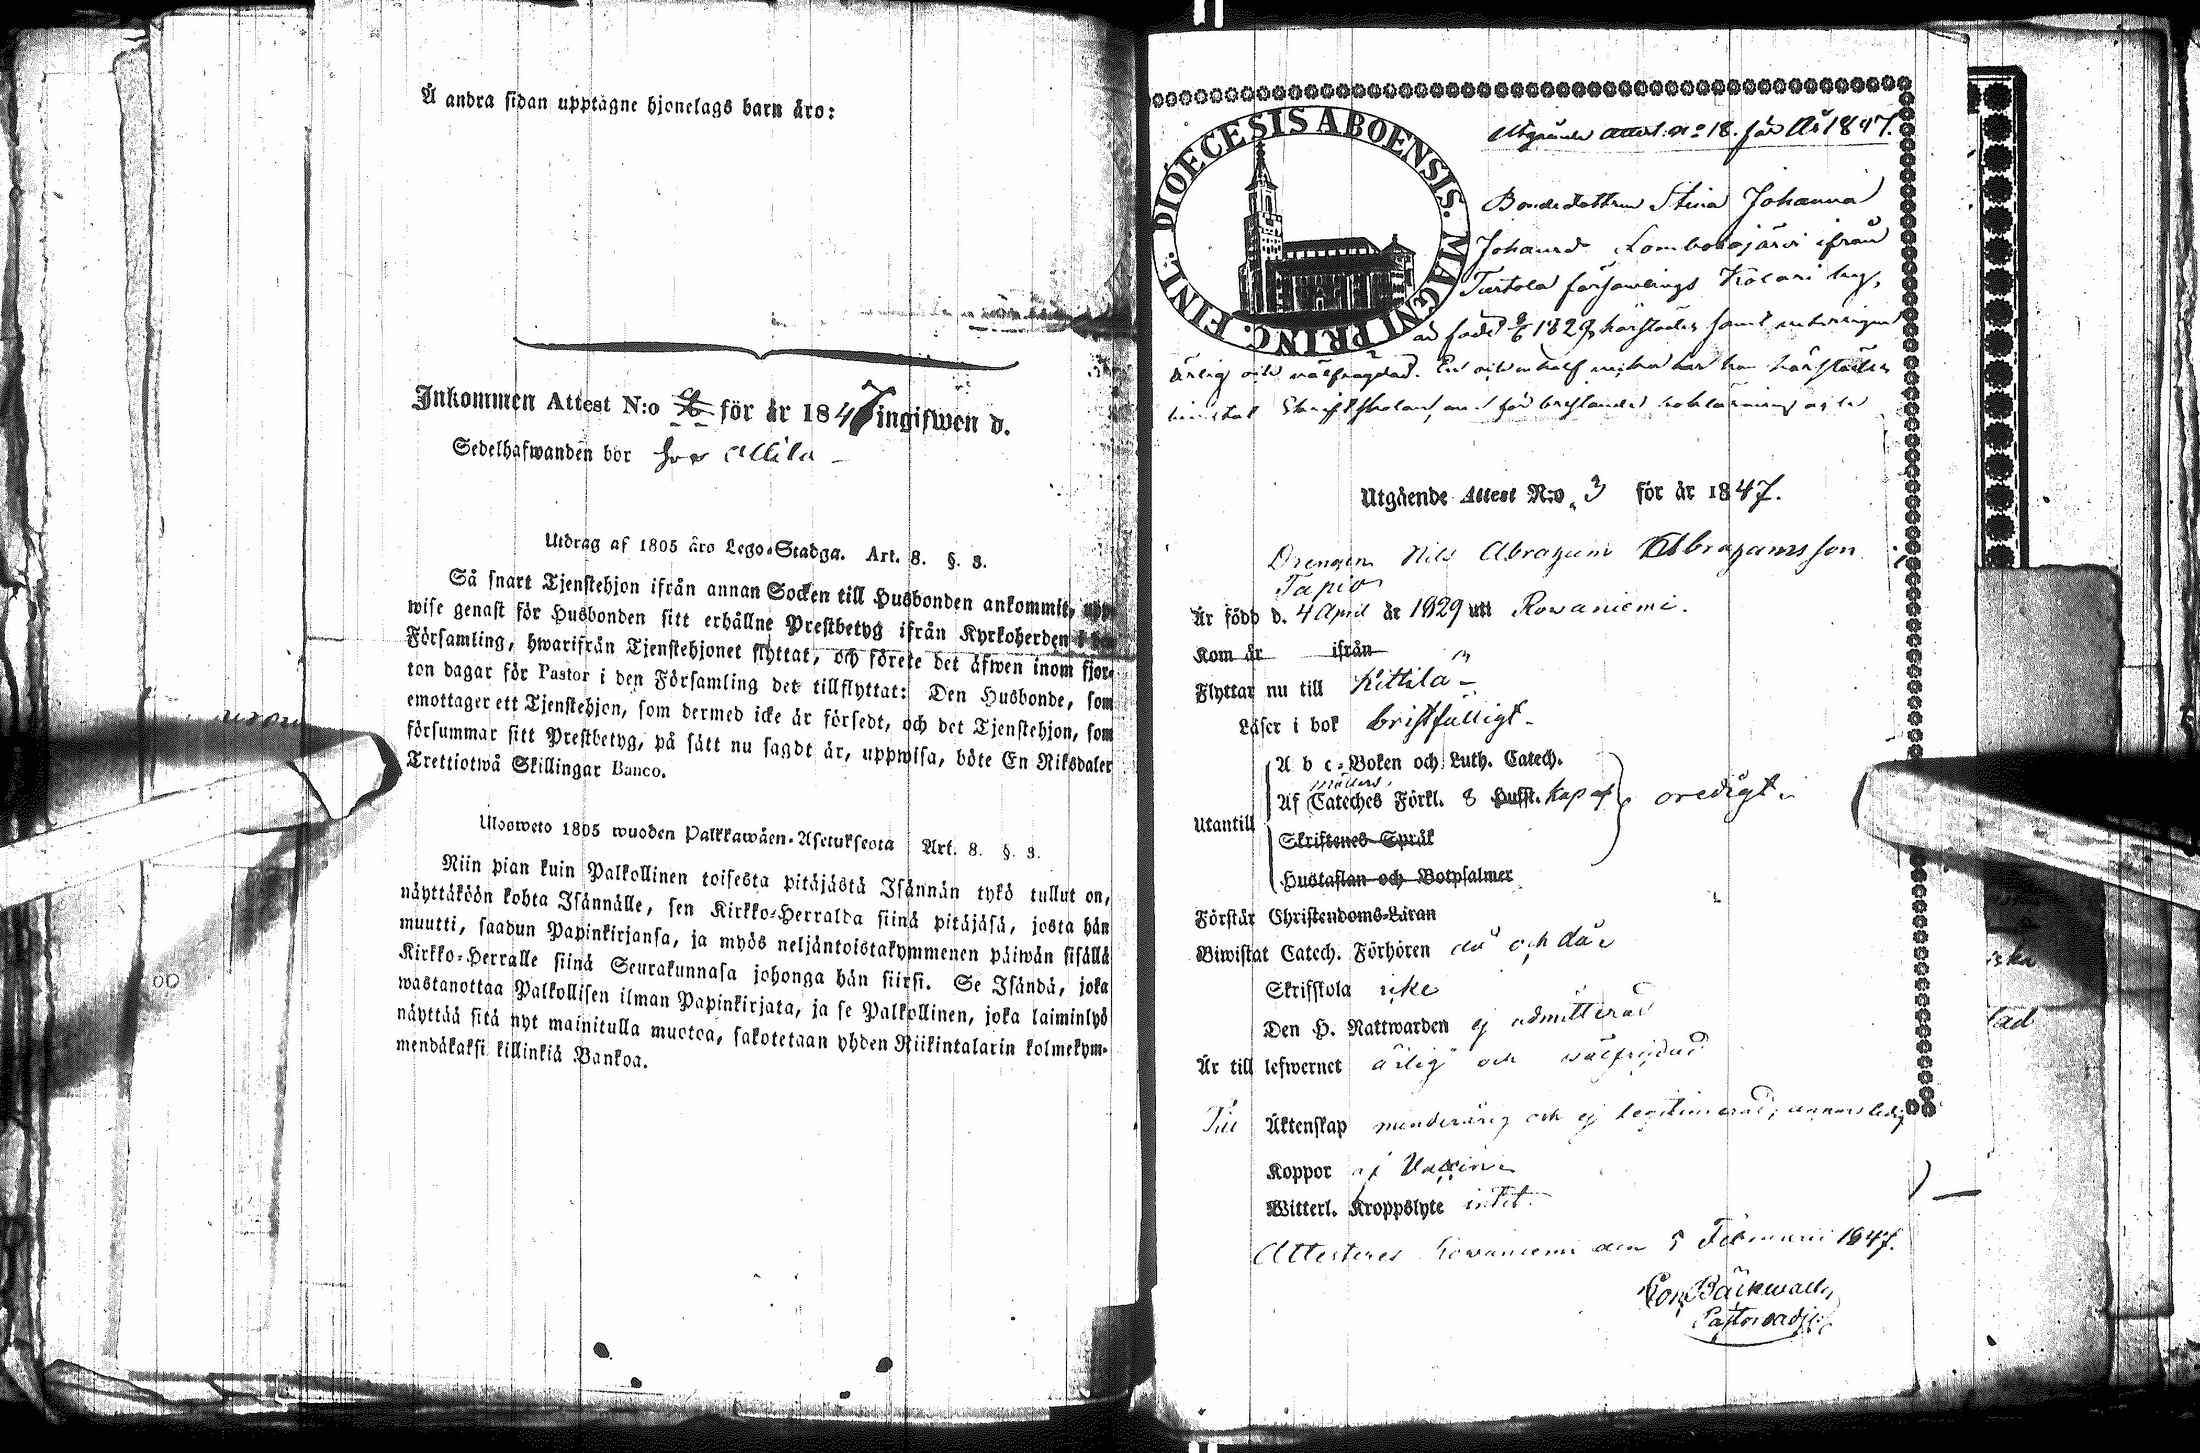 Å andra sidan upptagne hjonelags barn äro:
Inkommen Attest N:o för år 1847 ingifwen d.
Sedelhafwanden bor hos Attila
Utdrag af 1805 års Lego-Stadga. Art. 8. §. 3.
Så snart Tjenstehjon ifrån annan Socken till Husbonden ankommit, upp-
wise genast för Husbonden sitt erhållne Prestbetyg ifrån Kyrkoherden i den
Församling, hwarifrån Tjenstehjonet flyttat, och förete det äfwen inom fjor-
ton dagar för Pastor i den Församling det tillflyttat: Den Husbonde, som
emottager ett Tjenstehjon, som dermed icke är försedt, och det Tjenstehjon, som
försummar sitt Prestbetyg, på sätt nu sagdt är, uppwisa, böte En Riksdaler
Trettiotwå Skillingar Banco.
Ulosweto 1805 wuoden Palkkawäen-Asetuksesta Art. 8. §. 3.
Niin pian kuin Palkollinen toisesta pitäjästä Isännän tykö tullut on,
näyttäköön kohta Isännälle, sen Kirkko-Herralda siinä pitäjäsä, josta hän
muutti, saadun Papinkirjansa, ja myös neljäntoistakymmenen päiwän sisällä
Kirkko-Herralle siinä Seurakunnasa johonga hän siirsi. Se Isändä, joka
wastanottaa Palkollisen ilman Papinkirjata, ja se Palkollinen, joka laiminlyö
näyttää sitä nyt mainitulla muotoa, sakotetaan yhden Riikintalarin kolmekym-
mendäkaksi killinkiä Bankoa.
DIOECESIS ABOENSIS. MAGNI PRINC. FINL.
Utgående Attest. No 18. för År 1847.
Bondedottren Stina Johanna
Johansd. Lombolojärvi ifrån
Turtola församlings Kolari by,
är född 1829 härstädes samt
ärlig och välfrägdad. En och en half har hon härstädes
Utgående Attest N:o 3 för år 1847.
Drengen Nils Abraham Abrahamsson
Tapio
Är född d. 4 April år 1829 uti Rowaniemi.
Kom år ifrån
Flyttar nu till Kittilä
Läser i bok bristfälligt.
A b c-Boken och Luth. Catech.
Möllers
Af Cateches Förkl. 8 Husst. Kap af
oredigt
Utantill
Skriftenes Språk
Hustaflan och Botpsalmer
Förstår Christendoms-Läran
Biwistat Catech. Förhören då och då
Skrifskola icke
Den H. Nattwarden ej admitterad
Är till lefwernet ärlig och välfrägdad
Till Äktenskap minderårig och ej legitimerad, annars ledig
Koppor af Vaccine
Witterl. Kroppslyte intet.
Attesteras Rowaniemi den 5 Februarii 1847.
Bäckwall
Pastorsadj: